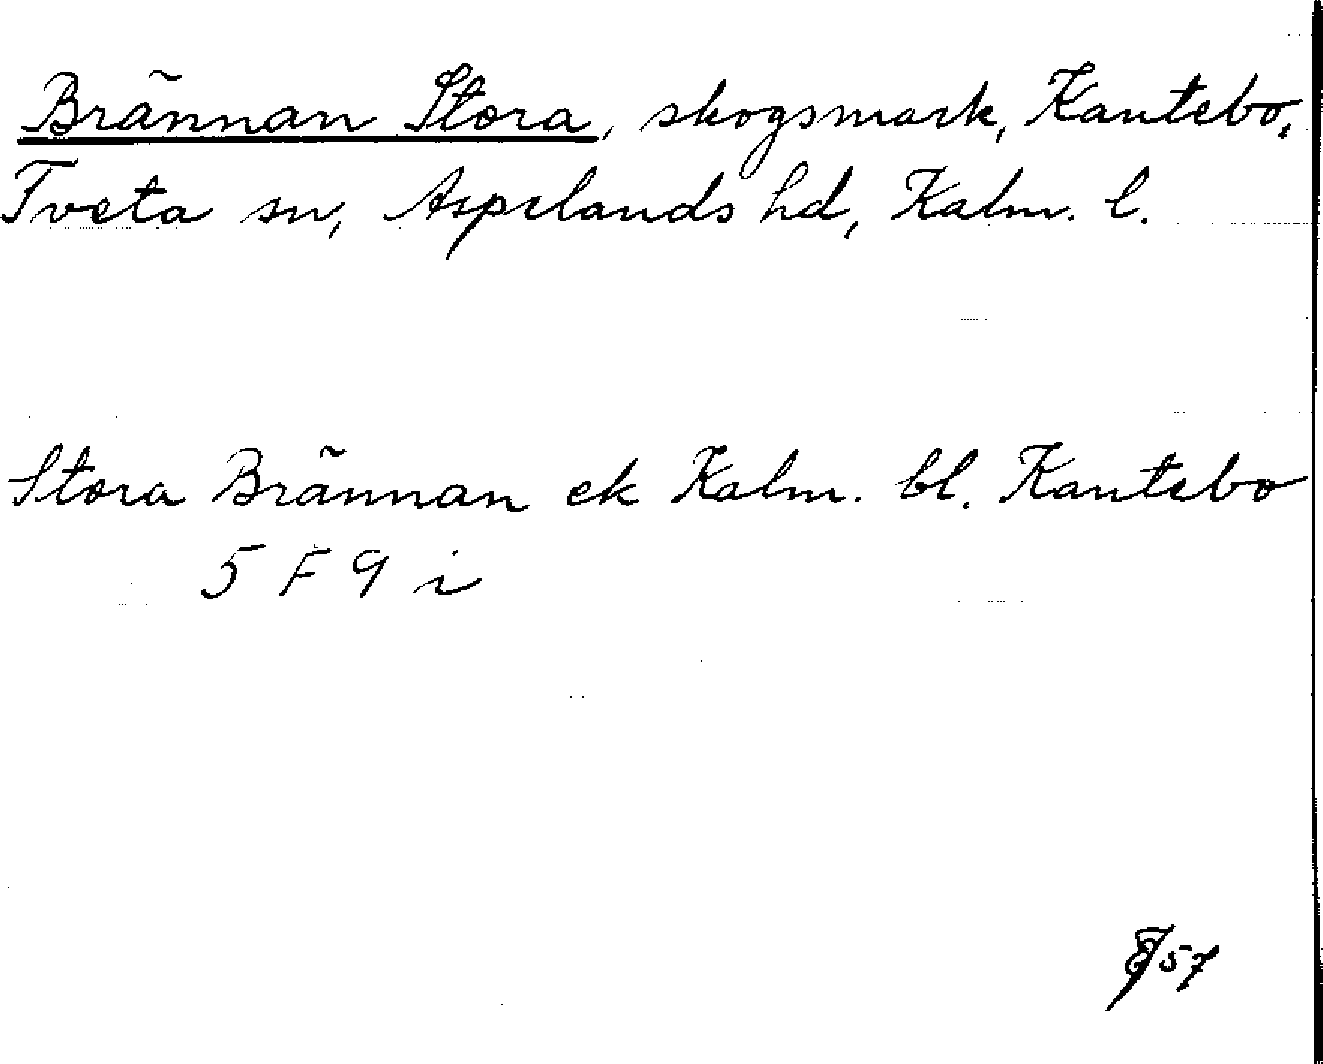 Brännan Stora, skogsmark, Kantebo,
Tveta sn, Aspelands hd, Kalm. l.
Stora Brännan ek Kalm. bl. Kantebo
5 F 9 i
57